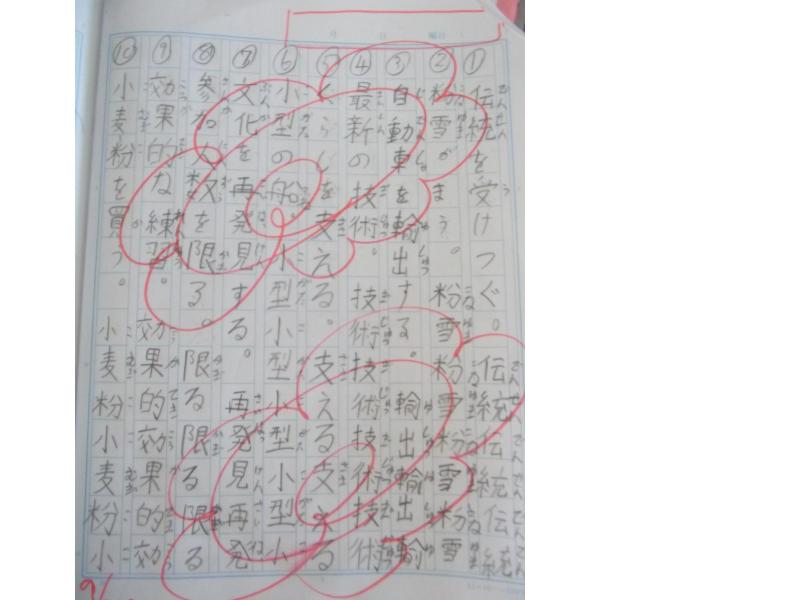 ①伝統を受けつぐ。伝統伝統伝統
②粉雪がまう。粉雪粉雪粉雪粉雪
③自動車を輸出する。輸出輸出輸
④最新の技術。技術技術技術技術
⑤くらしを支える。支える支える
⑥小型の船。小型小型小型小型小
⑦文化を再発見する。再発見再発
⑧参加人数を限る。限る限る限る
⑨効果的な練習。効果的効果的効
⑩小麦粉を買う。小麦粉小麦粉小